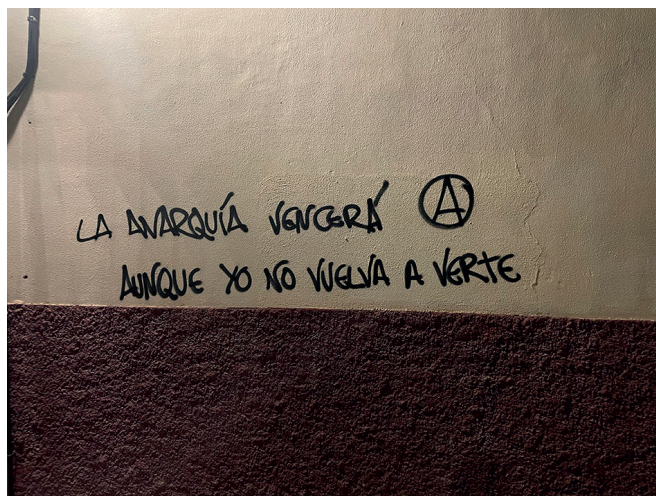 LA ANARQUÍA VENCERÁ Ⓐ
AUNQUE YO NO VUELVA A VERTE